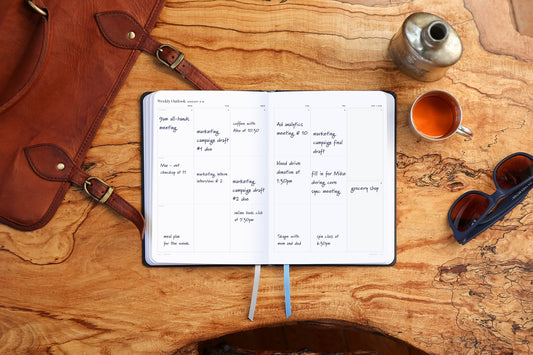 Weekly Outlook
9am all-hands
meeting
Max - vet
checkup at 11
meal plan
for the week
marketing
campaign draft
#1 due
marketing intern
interview @ 2
coffee with
at 10:30
marketing
campaign draft
#2 due
book club
at 7:30pm
Ad analytics
meeting @ 10
blood drive
donation at
1:30pm
Skype with
mom and dad
marketing
campaign final
draft
fill in for Mike
during
sync meeting
spin class at
6:30pm
grocery shop